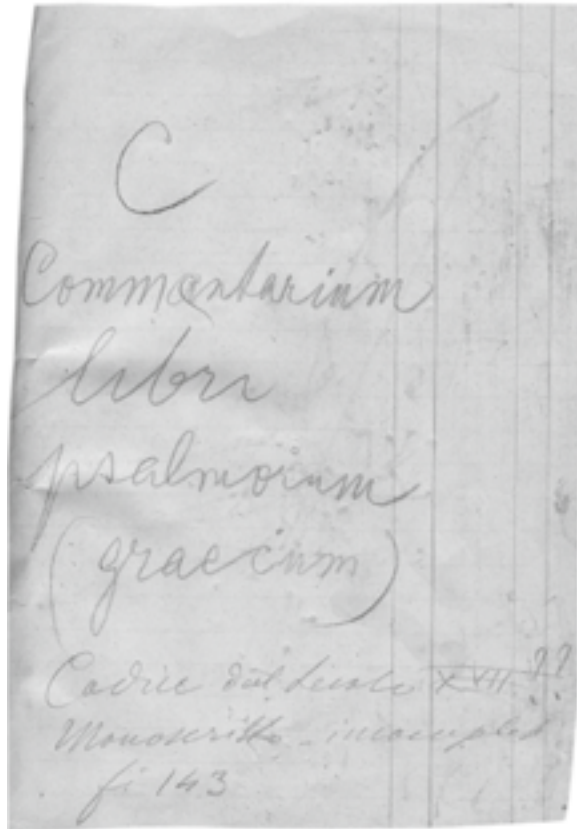 C
Commæntarium
libri
psalmorum
(graecum)
Codice del secolo XVII ??
Manoscritto - incomplet
fi 143